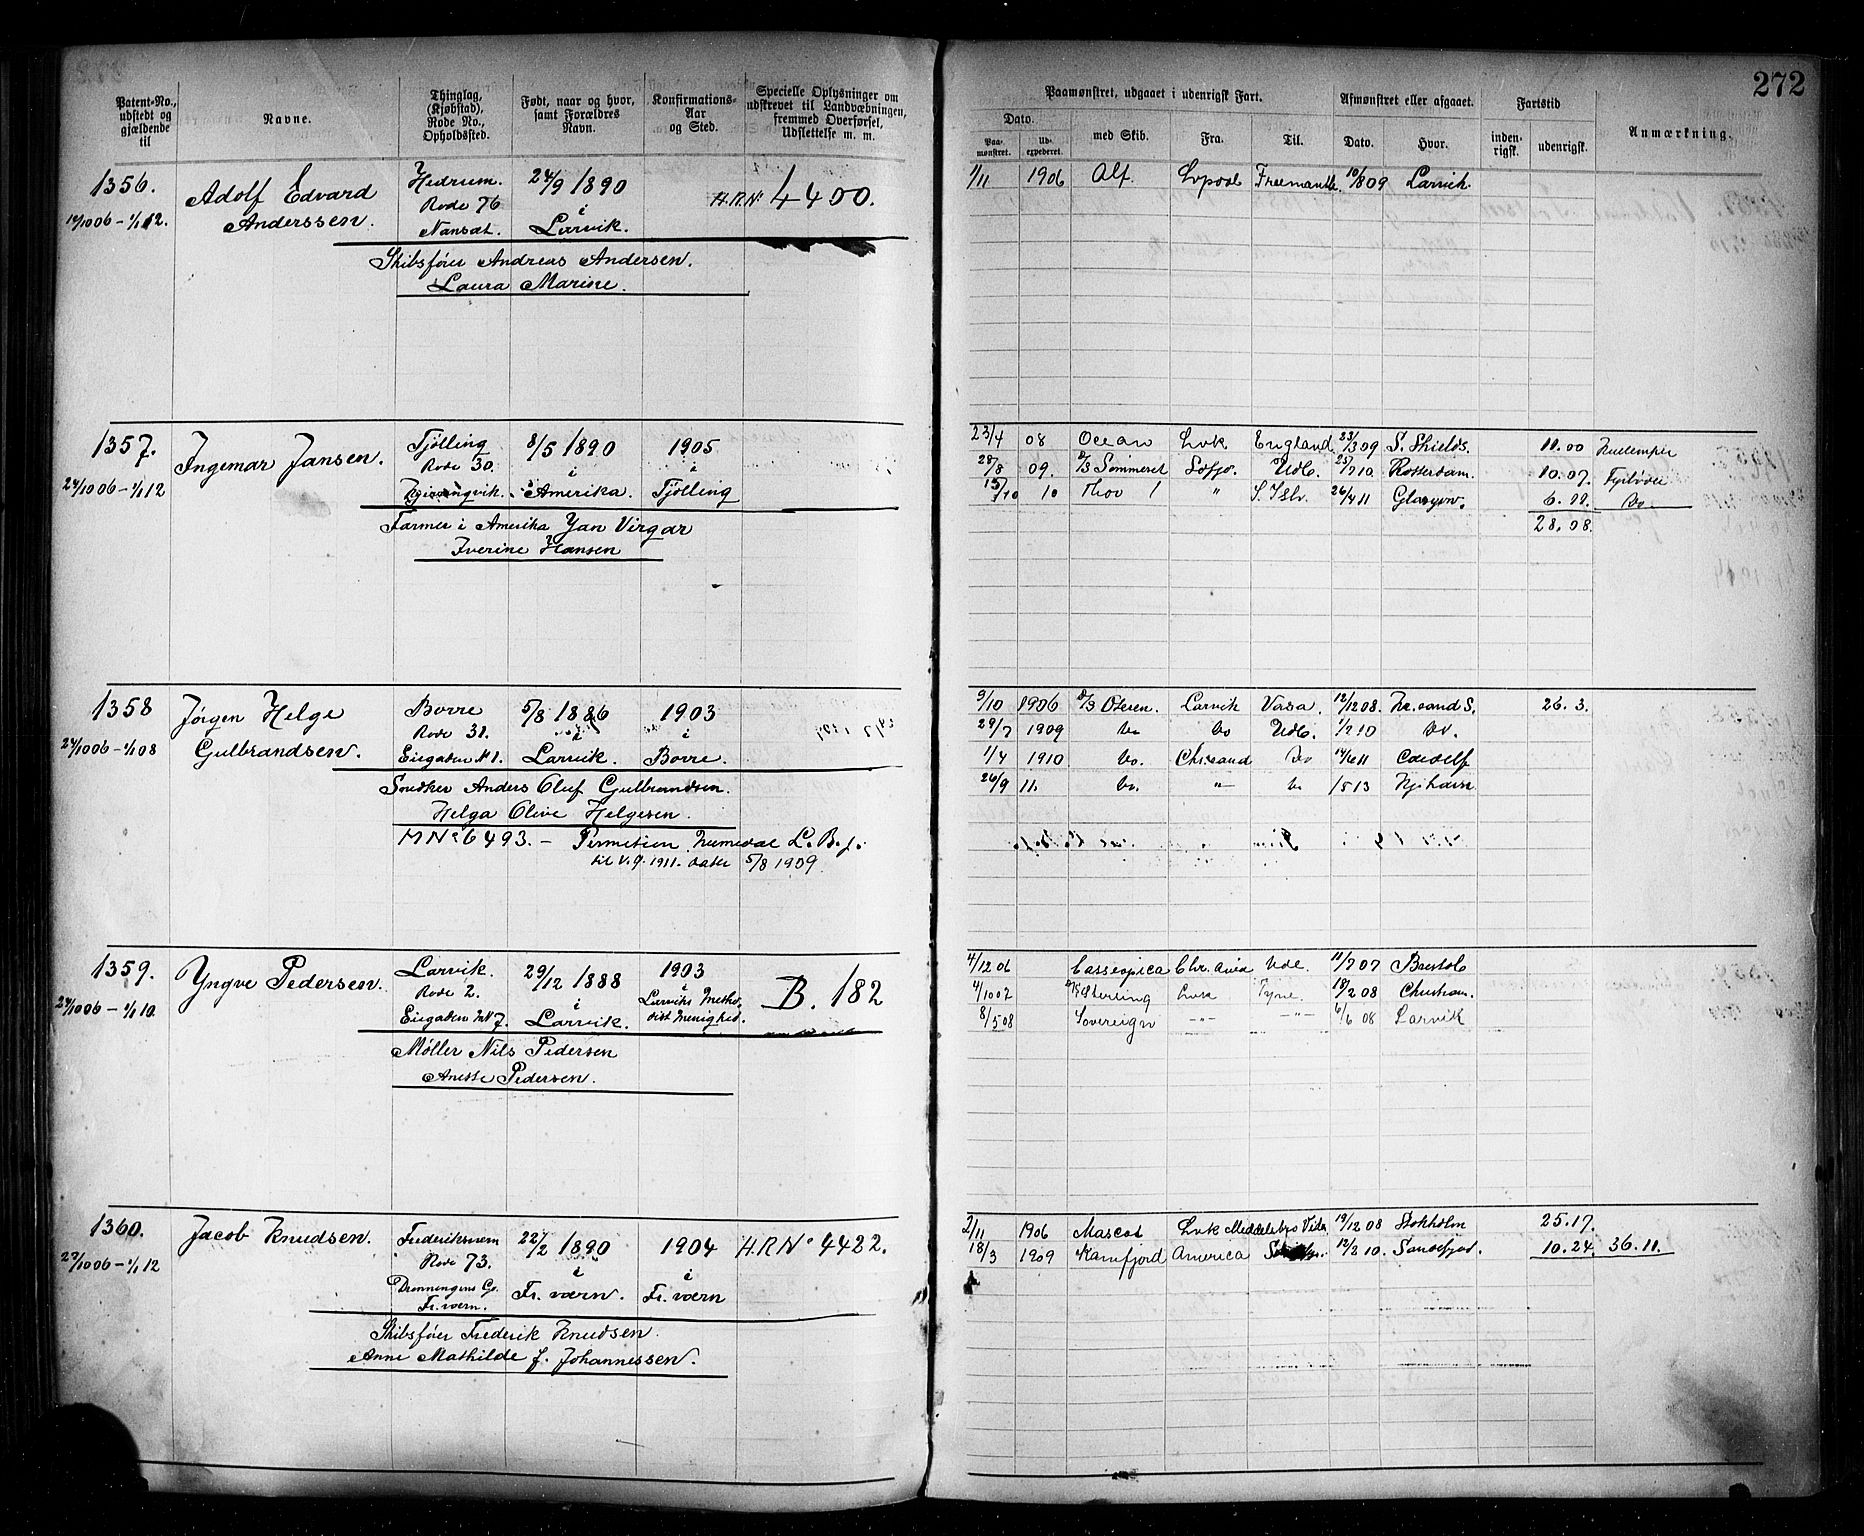 272
Patent-No., udstedt og gjældende til
Navne.
Thinglag, (Kjøbstad), Rode No., Opholdssted.
Født, naar og hvor, samt Forældres Navn.
Konfirmations-Aar og Sted.
Specielle Oplysninger om udskrevet til Landvæbningen, fremmed Overførsel, Udslettelse m. m.
Paamønstret, udgaaet i udenrigsk Fart.
Dato.
Paa-mønstret.
Ud-expederet.
med Skib.
Fra.
Til.
Afmønstret eller afgaaet.
Dato.
Hvor.
Fartstid
inden-rigsk.
udenrigsk.
Anmærkning.
1356.
Adolf Edvard
Anderssen.
Hedrum.
Rode 76
Nansæt.
24/9 1890
i
Larvik.
H.R.N° 4400.
Skibsfører Andreas Andersen.
Laura Marine.
1/11 1906 Alf. Lvpool Freemantle 10/8 09 Larvik.
1357.
24/10 06 - 1/1 12
Ingemar Jansen.
Tjølling
Rode 30.
8/5 1890
i
Amerika.
1905
i
Tjølling
Farmer i Amerika Jan Virgar
Iverine Hansen
23/4 08 Ocean Lvk England 23/3 09 S. Shields. 11.00
28/8 09. D/S Sommerst Udl. Rotterdam. 10.07.
10 Thov " 26/4 11 Glasgow.
28.08.
1358
24/10 06 - 1/1 08
Jørgen Helge
Gulbrandsen.
Borre
Rode 31.
5/8 1886
i
Larvik.
1903
i
Borre.
Snedker Anders Oluf Gulbrandsen.
Helga Olive Helgesen.
M N° 6493. - Permission
til 1911. 5/8 1909
9/10 1906 D/S Oteren. Larvik Vasa. 12/12 08 Kr.sand S. 26.3.
29/7 1909 Do Do Udl. 1/2 10 Do.
1/4 1910 Do. Chr.sand Do 14/6 11
26/9 11. Do. " Do 1/5 13
1359.
24/10 06 - 1/1 10
Yngve Pedersen.
Larvik.
Rode 2.
29/12 1888
i
Larvik.
1903
i
Larviks Metho-
dist Menighed.
B. 182
Møller Nils Pedersen
Anette Pedersen.
4/12 06 Casseopica Chr.ania Udl. 11/7 07 Bristol
4/10 07 Sterling Lvk Tyne. 18/2 08 Christian.
8/5 08 Sovereign -"- -"- 6/6 08 Larvik
1360.
27/10 06 - 1/1 12
Jacob Knudsen.
Frederiksværn
Rode 73.
Dronningens G.
Fr. værn.
22/2 1890
i
Fr. værn.
1904
i
Fr. værn
H.R.N° 4422.
Skibsfører Frederik Knudsen.
Anne Mathilde f. Johannessen.
2/11 1906 Mascot Lvk 19/12 08 Stokholm 25.17.
18/3 1909 America 12/2 10. Sandefjord. 10.24. 36.11.